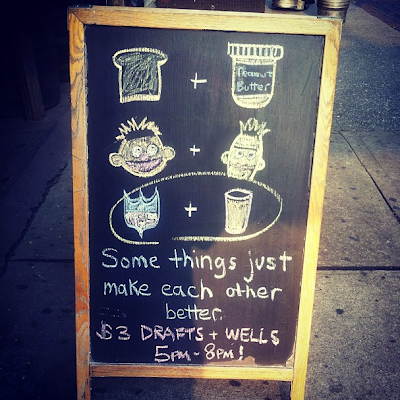 + Peanut
Butter
+
+
Some things just
make each other
better.
$3 DRAFTS + WELLS
5PM - 8PM!